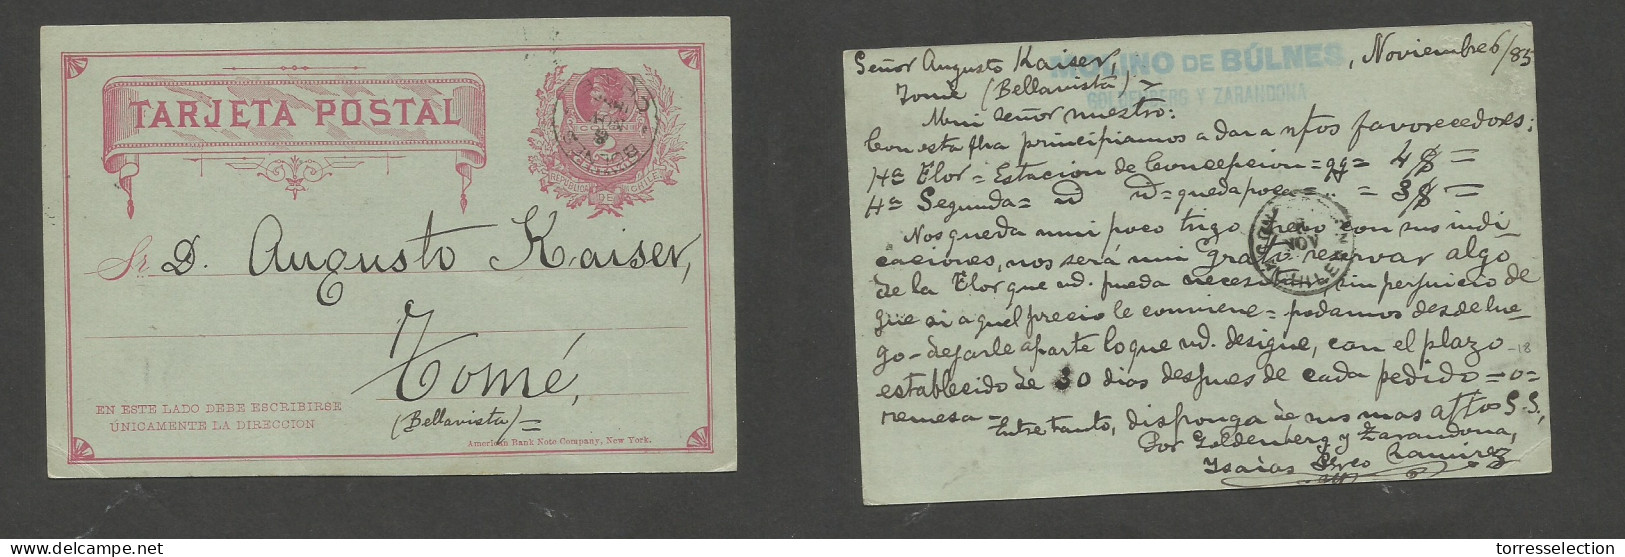 TARJETA POSTAL
REPUBLICA DE CHILE
BULNES
Sr. D. Augusto Kaiser,
Tomé,
(Bellavista)=
EN ESTE LADO DEBE ESCRIBIRSE
ÚNICAMENTE LA DIRECCION
American Bank Note Company, New York.
MOLINO DE BÚLNES
GOLDENBERG Y ZARANDONA
Noviembre 6/85
Señor Augusto Kaiser,
Tomé (Bellavista)
Mui señor nuestro:
Con esta fha principiamos a dar a nfos favorecedores:
Ha Flor = Estacion de Concepcion = qq = 4 $ =
Ha Segunda = id id = queda poca = .. = 3 $ =
Nos queda mui poco trigo i
con sus indi
caciones, nos será mui Grato reservar algo
de la Flor que ud. pueda necesitar sin perjuicio de
que si aquel precio le conviene = podamos desde lue-
go - dejarle aparte lo que ud. designe, con el plazo
establecido de 30 dias despues de cada pedido = o =
remesa = Entre tanto, disponga de sus mas affos S.S.,
Por Goldenberg y Zarandona,
Isaias Ramirez
NOV
18
torresselection